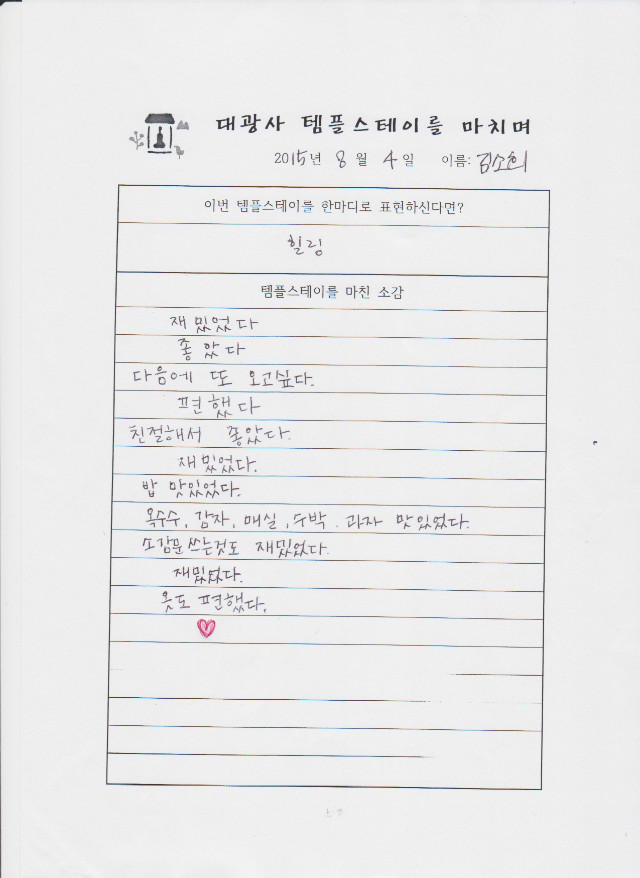 대광사 템플스테이를 마치며
2015년 8월 4일 이름: 김소희
이번 템플스테이를 한마디로 표현하신다면?
힐링
템플스테이를 마친 소감
재밌었다
좋았다
다음에 또 오고싶다.
편했다
친절해서 좋았다.
재밌었다.
밥 맛있었다.
옥수수, 감자, 매실, 수박. 과자 맛있었다.
소감문쓰는것도 재밌었다.
재밌었다.
옷도 편했다.